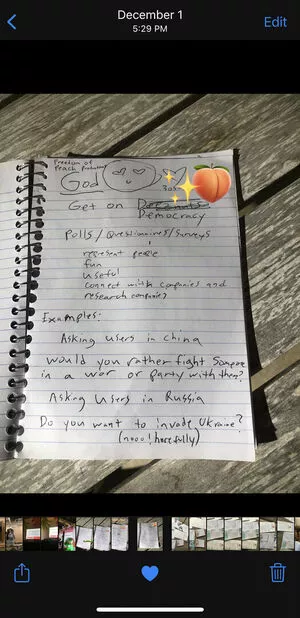 December 1
5:29 PM
Edit
Freedom of
Peach
God
305
Get on
Democracy
Polls / Questionnaires / Surveys
represent people
fun
useful
connect with companies and
research companies
Examples:
Asking users in china
Would you rather fight someone
in a war or party with them?
Asking users in Russia
Do you want to invade Ukraine?
(nooo! hopefully)